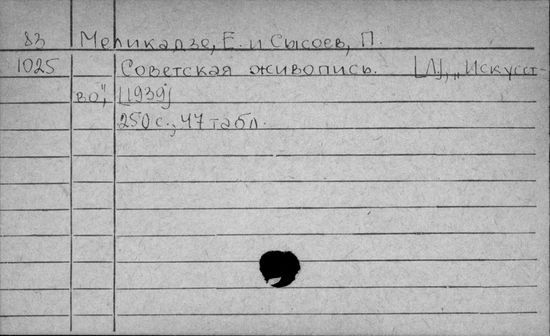 83 Меликадзе, Е. и Сысоев, П.
1025 Советская живопись. [Л], "Искусст-
во", [1939]
250 с., 47 табл.